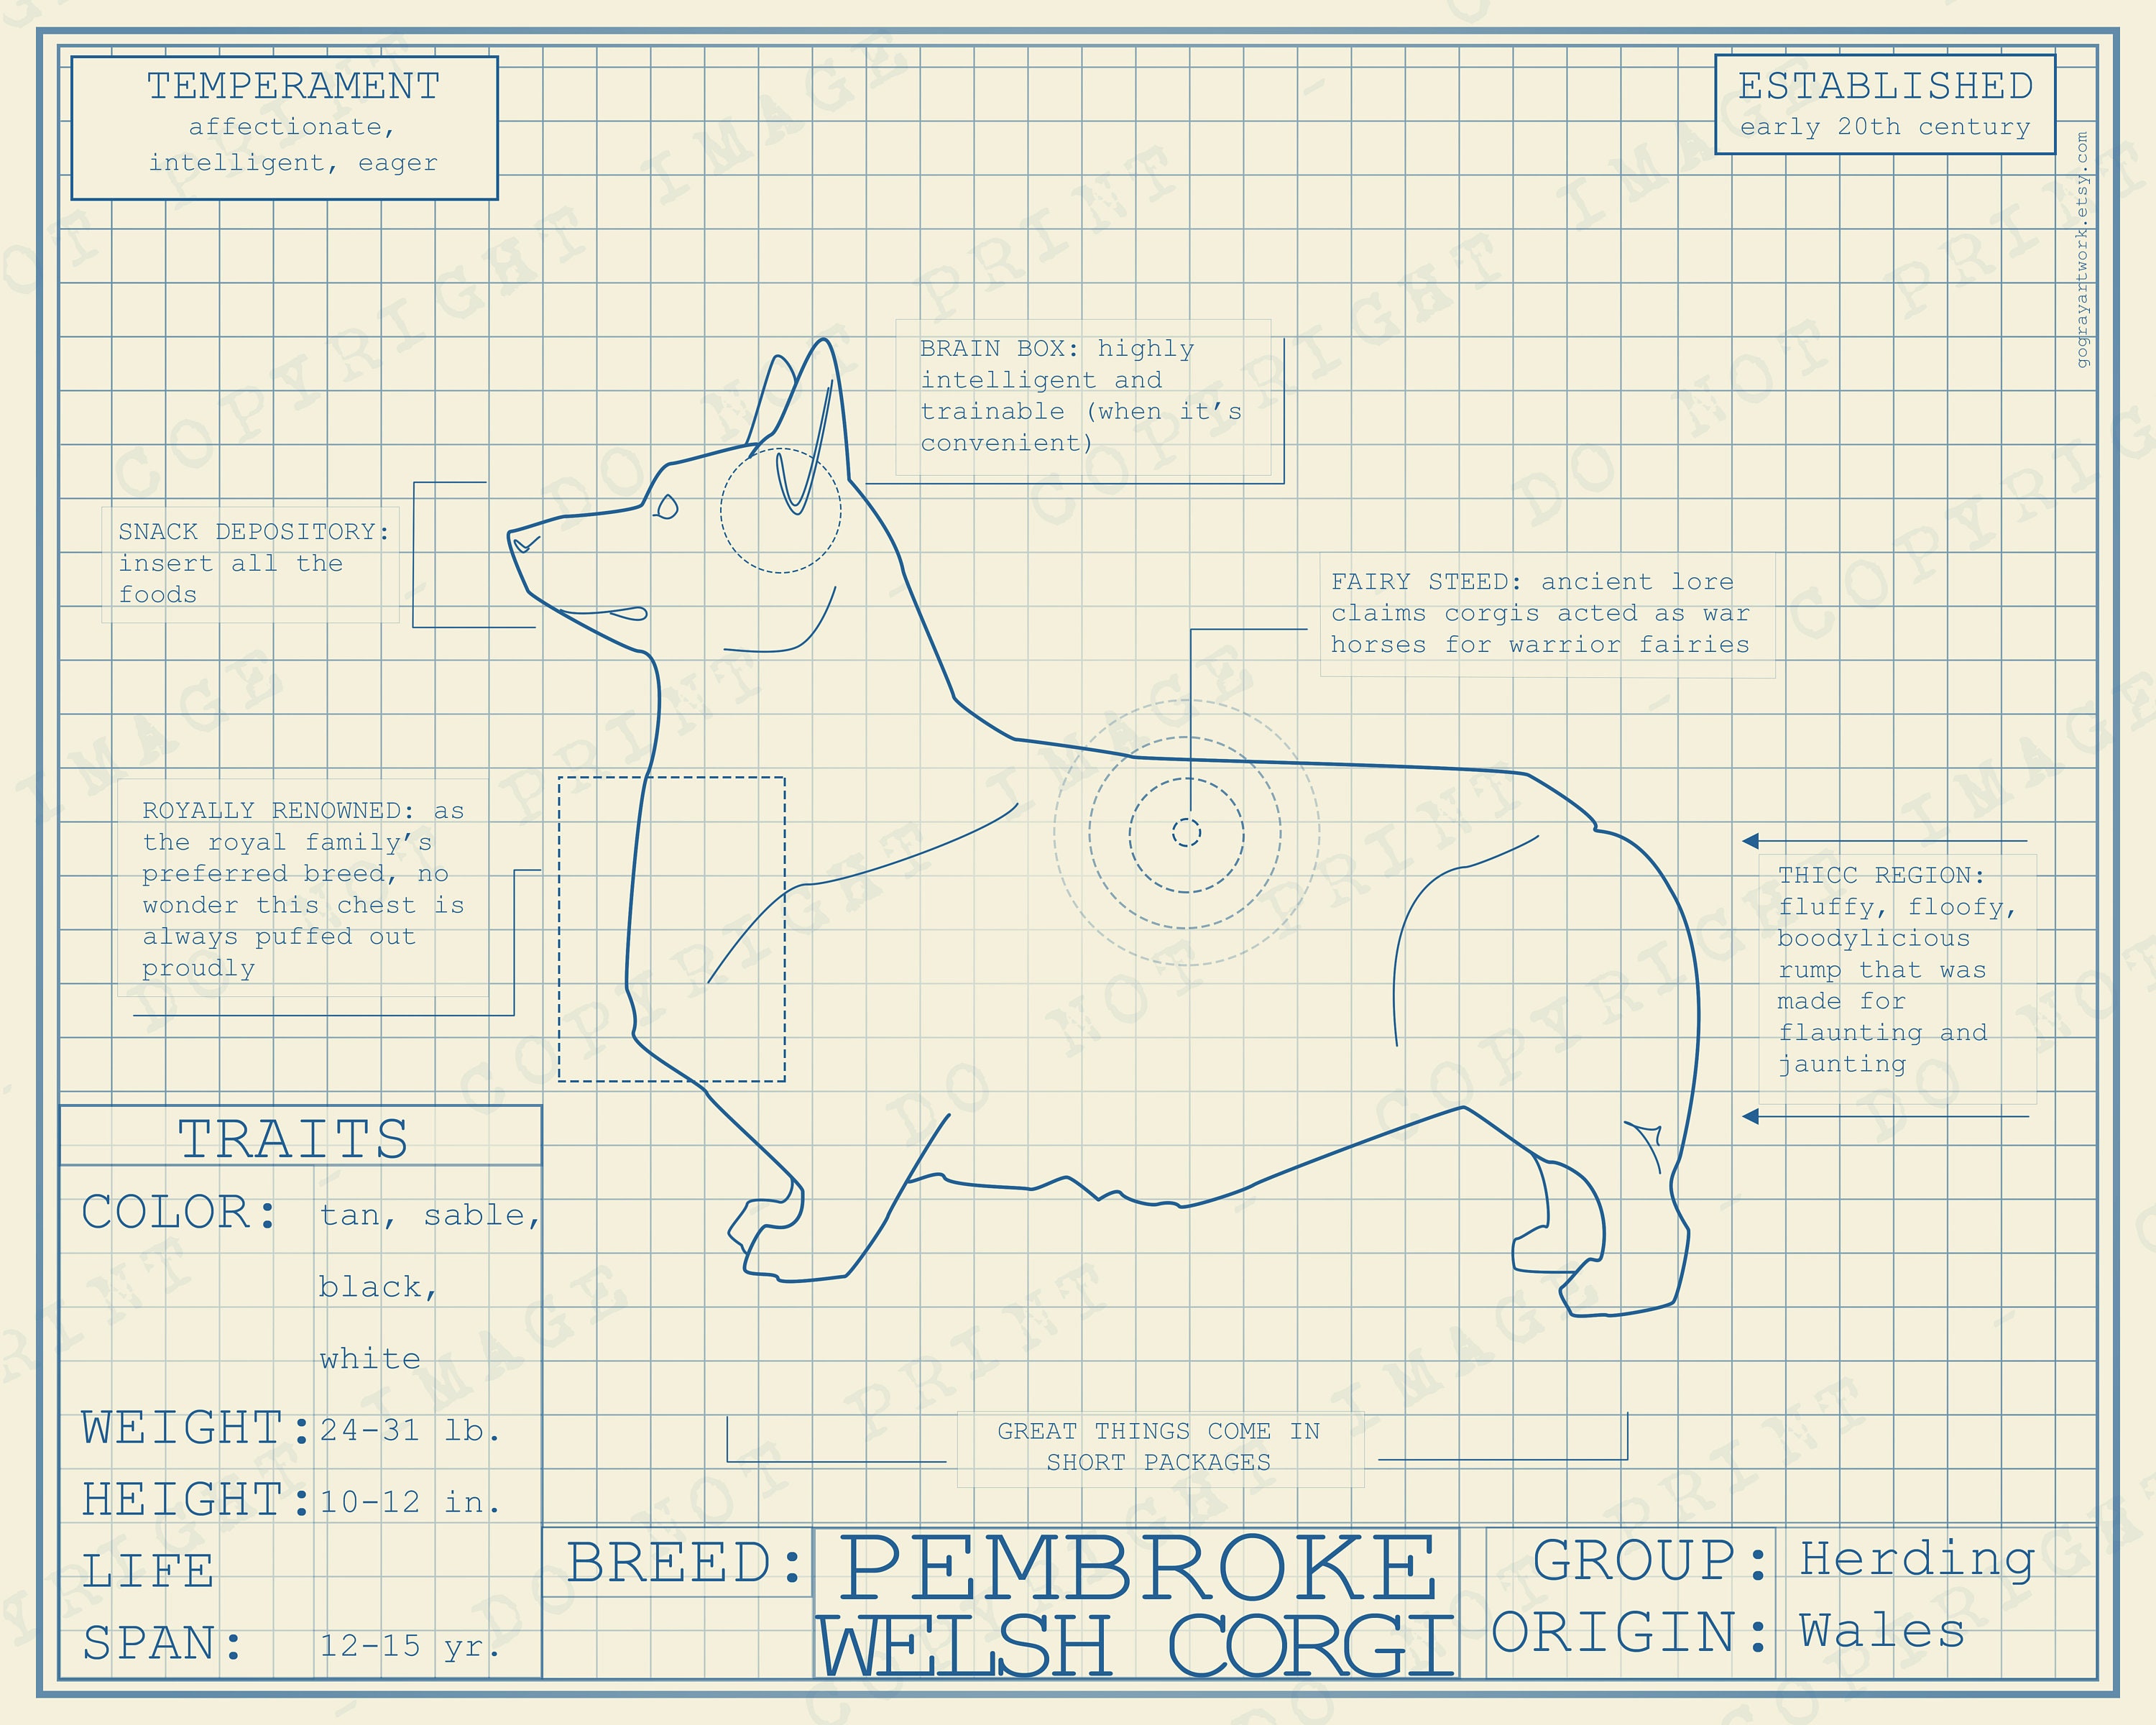 TEMPERAMENT
affectionate,
intelligent, eager
ESTABLISHED
early 20th century
gograyartwork.etsy.com
BRAIN BOX: highly
intelligent and
trainable (when it’s
convenient)
SNACK DEPOSITORY:
insert all the
foods
FAIRY STEED: ancient lore
claims corgis acted as war
horses for warrior fairies
ROYALLY RENOWNED: as
the royal family’s
preferred breed, no
wonder this chest is
always puffed out
proudly
THICC REGION:
fluffy, floofy,
boodylicious
rump that was
made for
flaunting and
jaunting
TRAITS
COLOR: tan, sable,
black,
white
WEIGHT: 24-31 lb.
HEIGHT: 10-12 in.
LIFE
SPAN: 12-15 yr.
GREAT THINGS COME IN
SHORT PACKAGES
BREED: PEMBROKE
WELSH CORGI
GROUP: Herding
ORIGIN: Wales
COPYRIGHT IMAGE - DO NOT PRINT